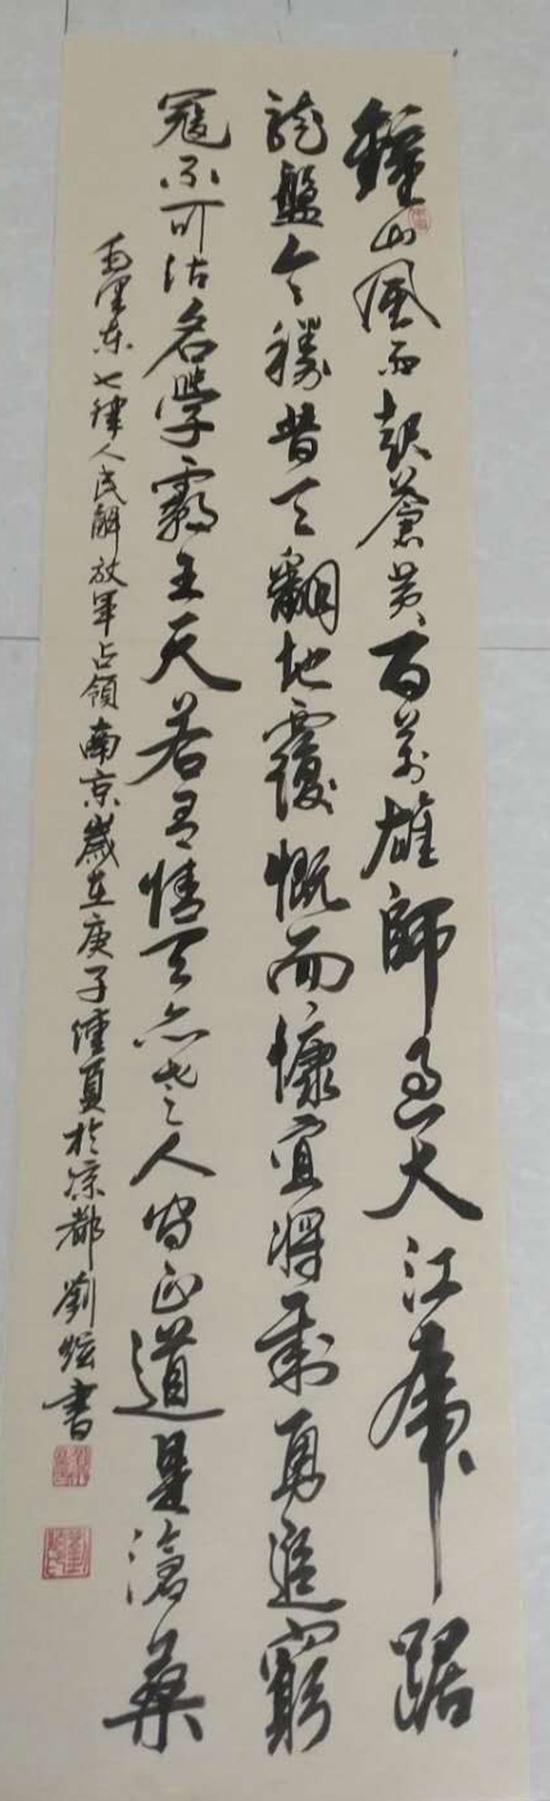 鐘山風雨起蒼黄百萬雄師過大江虎踞
龍盤今勝昔天翻地覆慨而慷宜將剩勇追窮
寇不可沽名學霸王天若有情天亦老人間正道是滄桑
毛澤東七律人民解放軍占領南京歲在庚子仲夏於涼都劉炫書